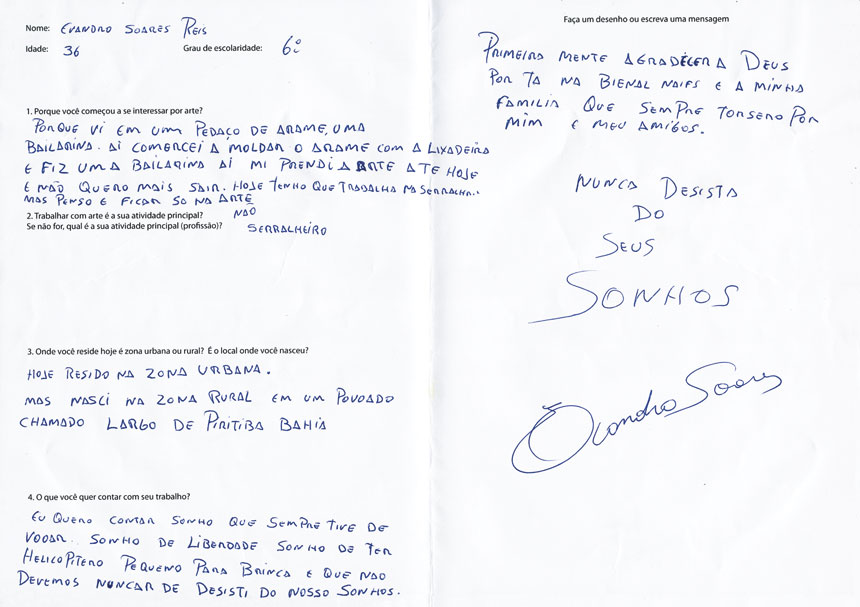 Nome: EVANDRO SOARES REIS
Idade: 36 Grau de escolaridade: 6º
1. Porque você começou a se interessar por arte?
PORQUE VI EM UM PEDAÇO DE ARAME, UMA
BAILARINA. AI COMERCEI A MOLDAR O ARAME COM A LIXADEIRA
E FIZ UMA BAILARINA AI MI PRENDI A ARTE ATE HOJE
E NÃO QUERO MAIS SAIR. HOJE TENHO QUE TRABALHA NA SERRALHA..
MAS PENSO E FICAR SO NA ARTE
2. Trabalhar com arte é a sua atividade principal? NAO
Se não for, qual é a sua atividade principal (profissão)? SERRALHEIRO
3. Onde você reside hoje é zona urbana ou rural? É o local onde você nasceu?
HOJE RESIDO NA ZONA URBANA.
MAS NASCI NA ZONA RURAL EM UM POVOADO
CHAMADO LARGO DE PIRITIBA BAHIA
4. O que você quer contar com seu trabalho?
EU QUERO CONTAR SONHO QUE SEMPRE TIVE DE
VOOAR. SONHO DE LIBERDADE SONHO DE TER
HELICOPITERO PEQUENO PARA BRINCA E QUE NAO
DEVEMOS NUNCAR DE DESISTI DO NOSSO SONHOS.
Faça um desenho ou escreva uma mensagem
PRIMEIRA MENTE AGRADECER A DEUS
POR TA NA BIENAL NAIFS E A MINHA
FAMILIA QUE SEMPRE TORSERO POR
MIM E MEU AMIGOS.
NUNCA DESISTA
DO
SEUS
SONHOS
Evandro Soares